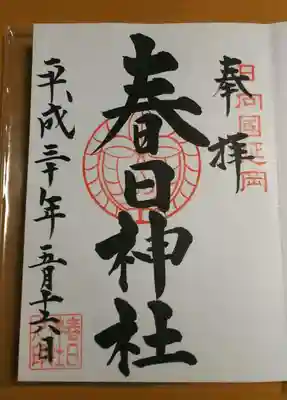 奉拝
日向國延岡
春日神社
平成三十年五月十六日